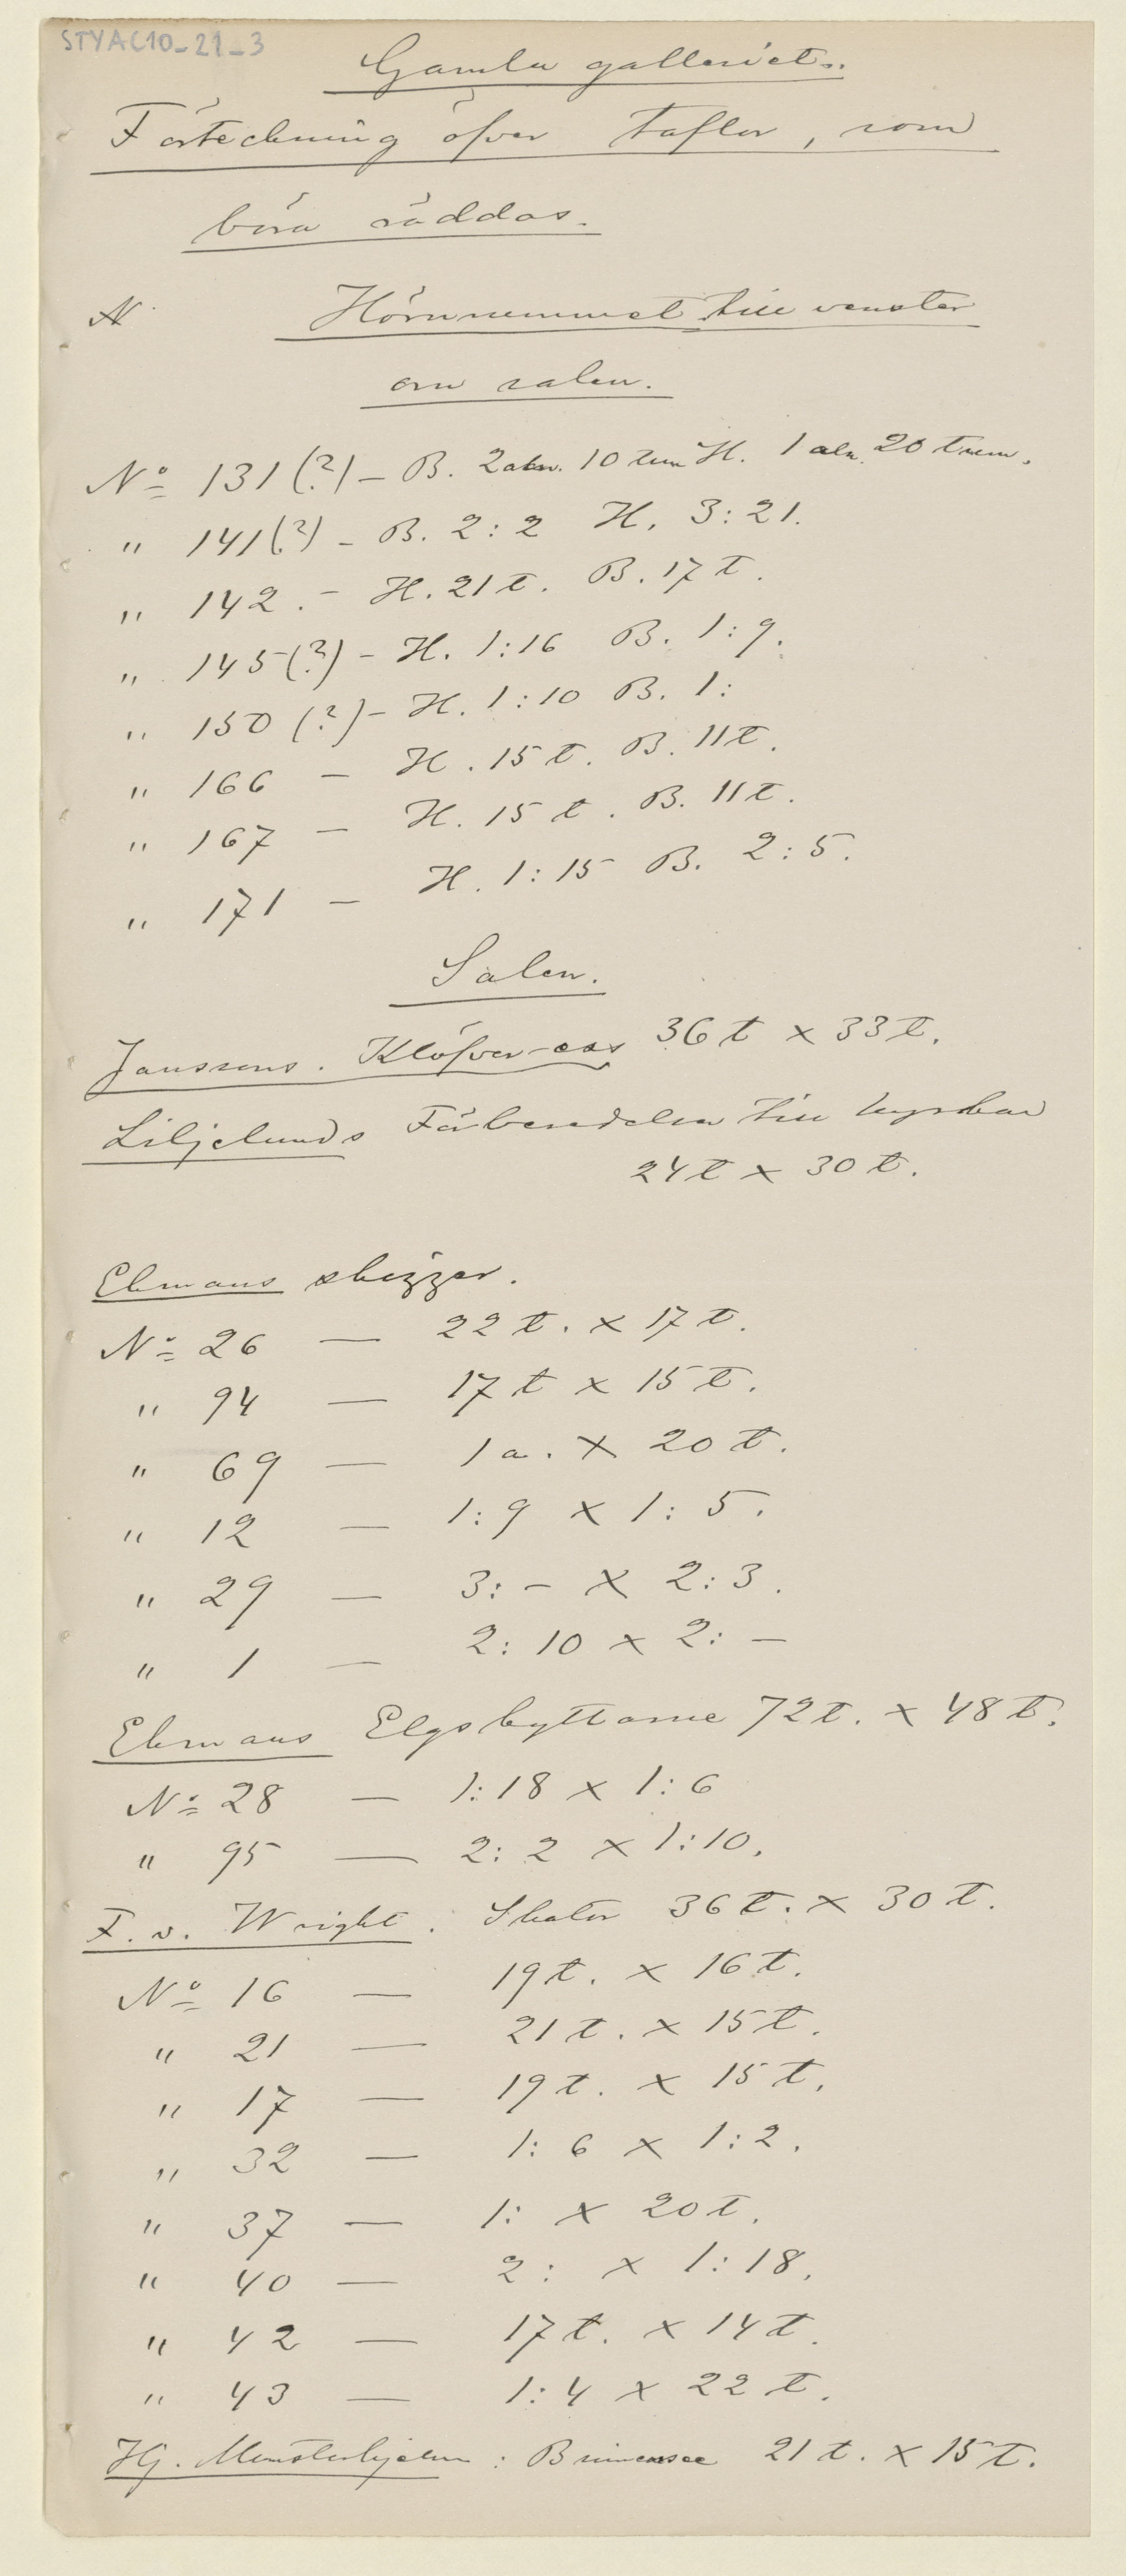 STYAC10_21_3
Gamla galleriet.
Förteckning öfver taflor, som
böra räddas.
N
Hörnrummet till venster
om salen.
No 131 (?) – B. 2 aln. 10 tum H. 1 aln. 20 tum.
" 141 (?) – B. 2:2 H. 3:21.
" 142. – H. 21 t. B. 17 t.
" 145 (?) – H. 1:16 B. 1:9.
" 150 (?) – H. 1:10 B. 1:
" 166 – H. 15 t. B. 11 t.
" 167 – H. 15 t. B. 11 t.
" 171 – H. 1:15 B. 2:5.
Salen.
Janssons. Klöfver-ess 36 t x 33 t.
Liljelunds Förberedelser till
24 t x 30 t.
Ekmans skizzer.
No 26 — 22 t. x 17 t.
" 94 — 17 t x 15 t.
" 69 — 1 a. x 20 t.
" 12 — 1:9 x 1:5.
" 29 — 3:– x 2:3.
" 1 — 2:10 x 2:–
Ekmans Elgskyttarne 72 t. x 48 t.
No 28 — 1:18 x 1:6
" 95 — 2:2 x 1:10.
F. v. Wright. Skator 36 t. x 30 t.
No 16 — 19 t. x 16 t.
" 21 — 21 t. x 15 t.
" 17 — 19 t. x 15 t.
" 32 — 1:6 x 1:2.
" 37 — 1: x 20 t.
" 40 — 2: x 1:18.
" 42 — 17 t. x 14 t.
" 43 — 1:4 x 22 t.
Hj. Munsterhjelm : 21 t. x 15 t.